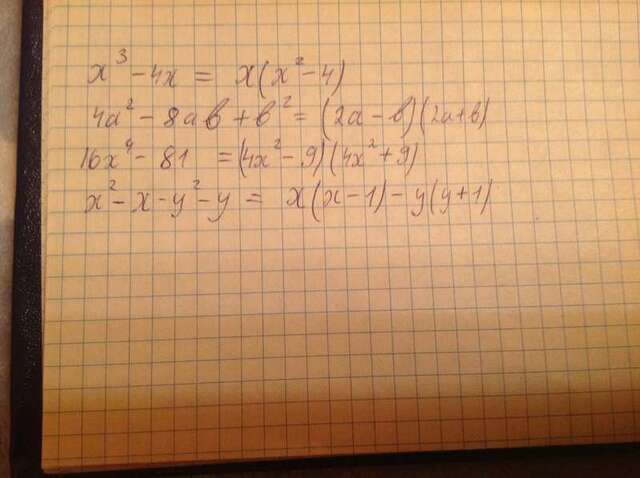 x³ - 4x = x(x² - 4)
4a² - 8ab + b² = (2a - b)(2a + b)
16x⁴ - 81 = (4x² - 9)(4x² + 9)
x² - x - y² - y = x(x - 1) - y(y + 1)